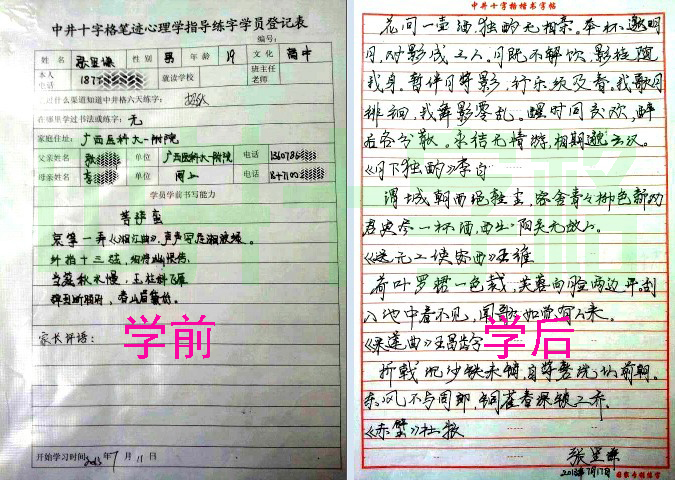 中井十字格笔迹心理学指导练字学员登记表
编号:
姓名 性别 男 年龄 19 文化 高中
本人电话 1877 就读学校 班主任老师
通过什么渠道知道中井格六天练字:
在哪里学过书法或练字: 无
家庭住址: 广西医科大一附院
父亲姓名 单位 广西医科大一附院 电话
母亲姓名 李 单位 同上 电话
学员学前书写能力
菩萨蛮
哀筝一弄《湘江曲》,声声写尽湘波绿。
纤指十三弦,细将幽恨传。
当筵秋水慢,玉柱斜飞雁
弹到断肠时,春山眉黛低。
家长评语:
开始学习时间: 2013年7月11日
学前
中井十字格楷书字帖
花间一壶酒,独酌无相亲。举杯邀明
月,对影成三人。月既不解饮,影徒随
我身。暂伴月将影,行乐须及春。我歌月
徘徊,我舞影零乱。醒时同交欢,醉
后各分散。永结无情游,相期邈云汉。
《月下独酌》李白
渭城朝雨浥轻尘,客舍青々柳色新劝
君更尽一杯酒,西出阳关无故人。
《送元二使安西》王维
荷叶罗裙一色裁,芙蓉向脸两边开乱
入池中看不见,闻歌始觉有人来。
《采莲曲》王昌龄
折戟沉沙铁未销,自将磨洗认前朝。
东风不与周郎便,铜雀春深锁二乔。
《赤壁》杜牧
2013年7月17日
学后